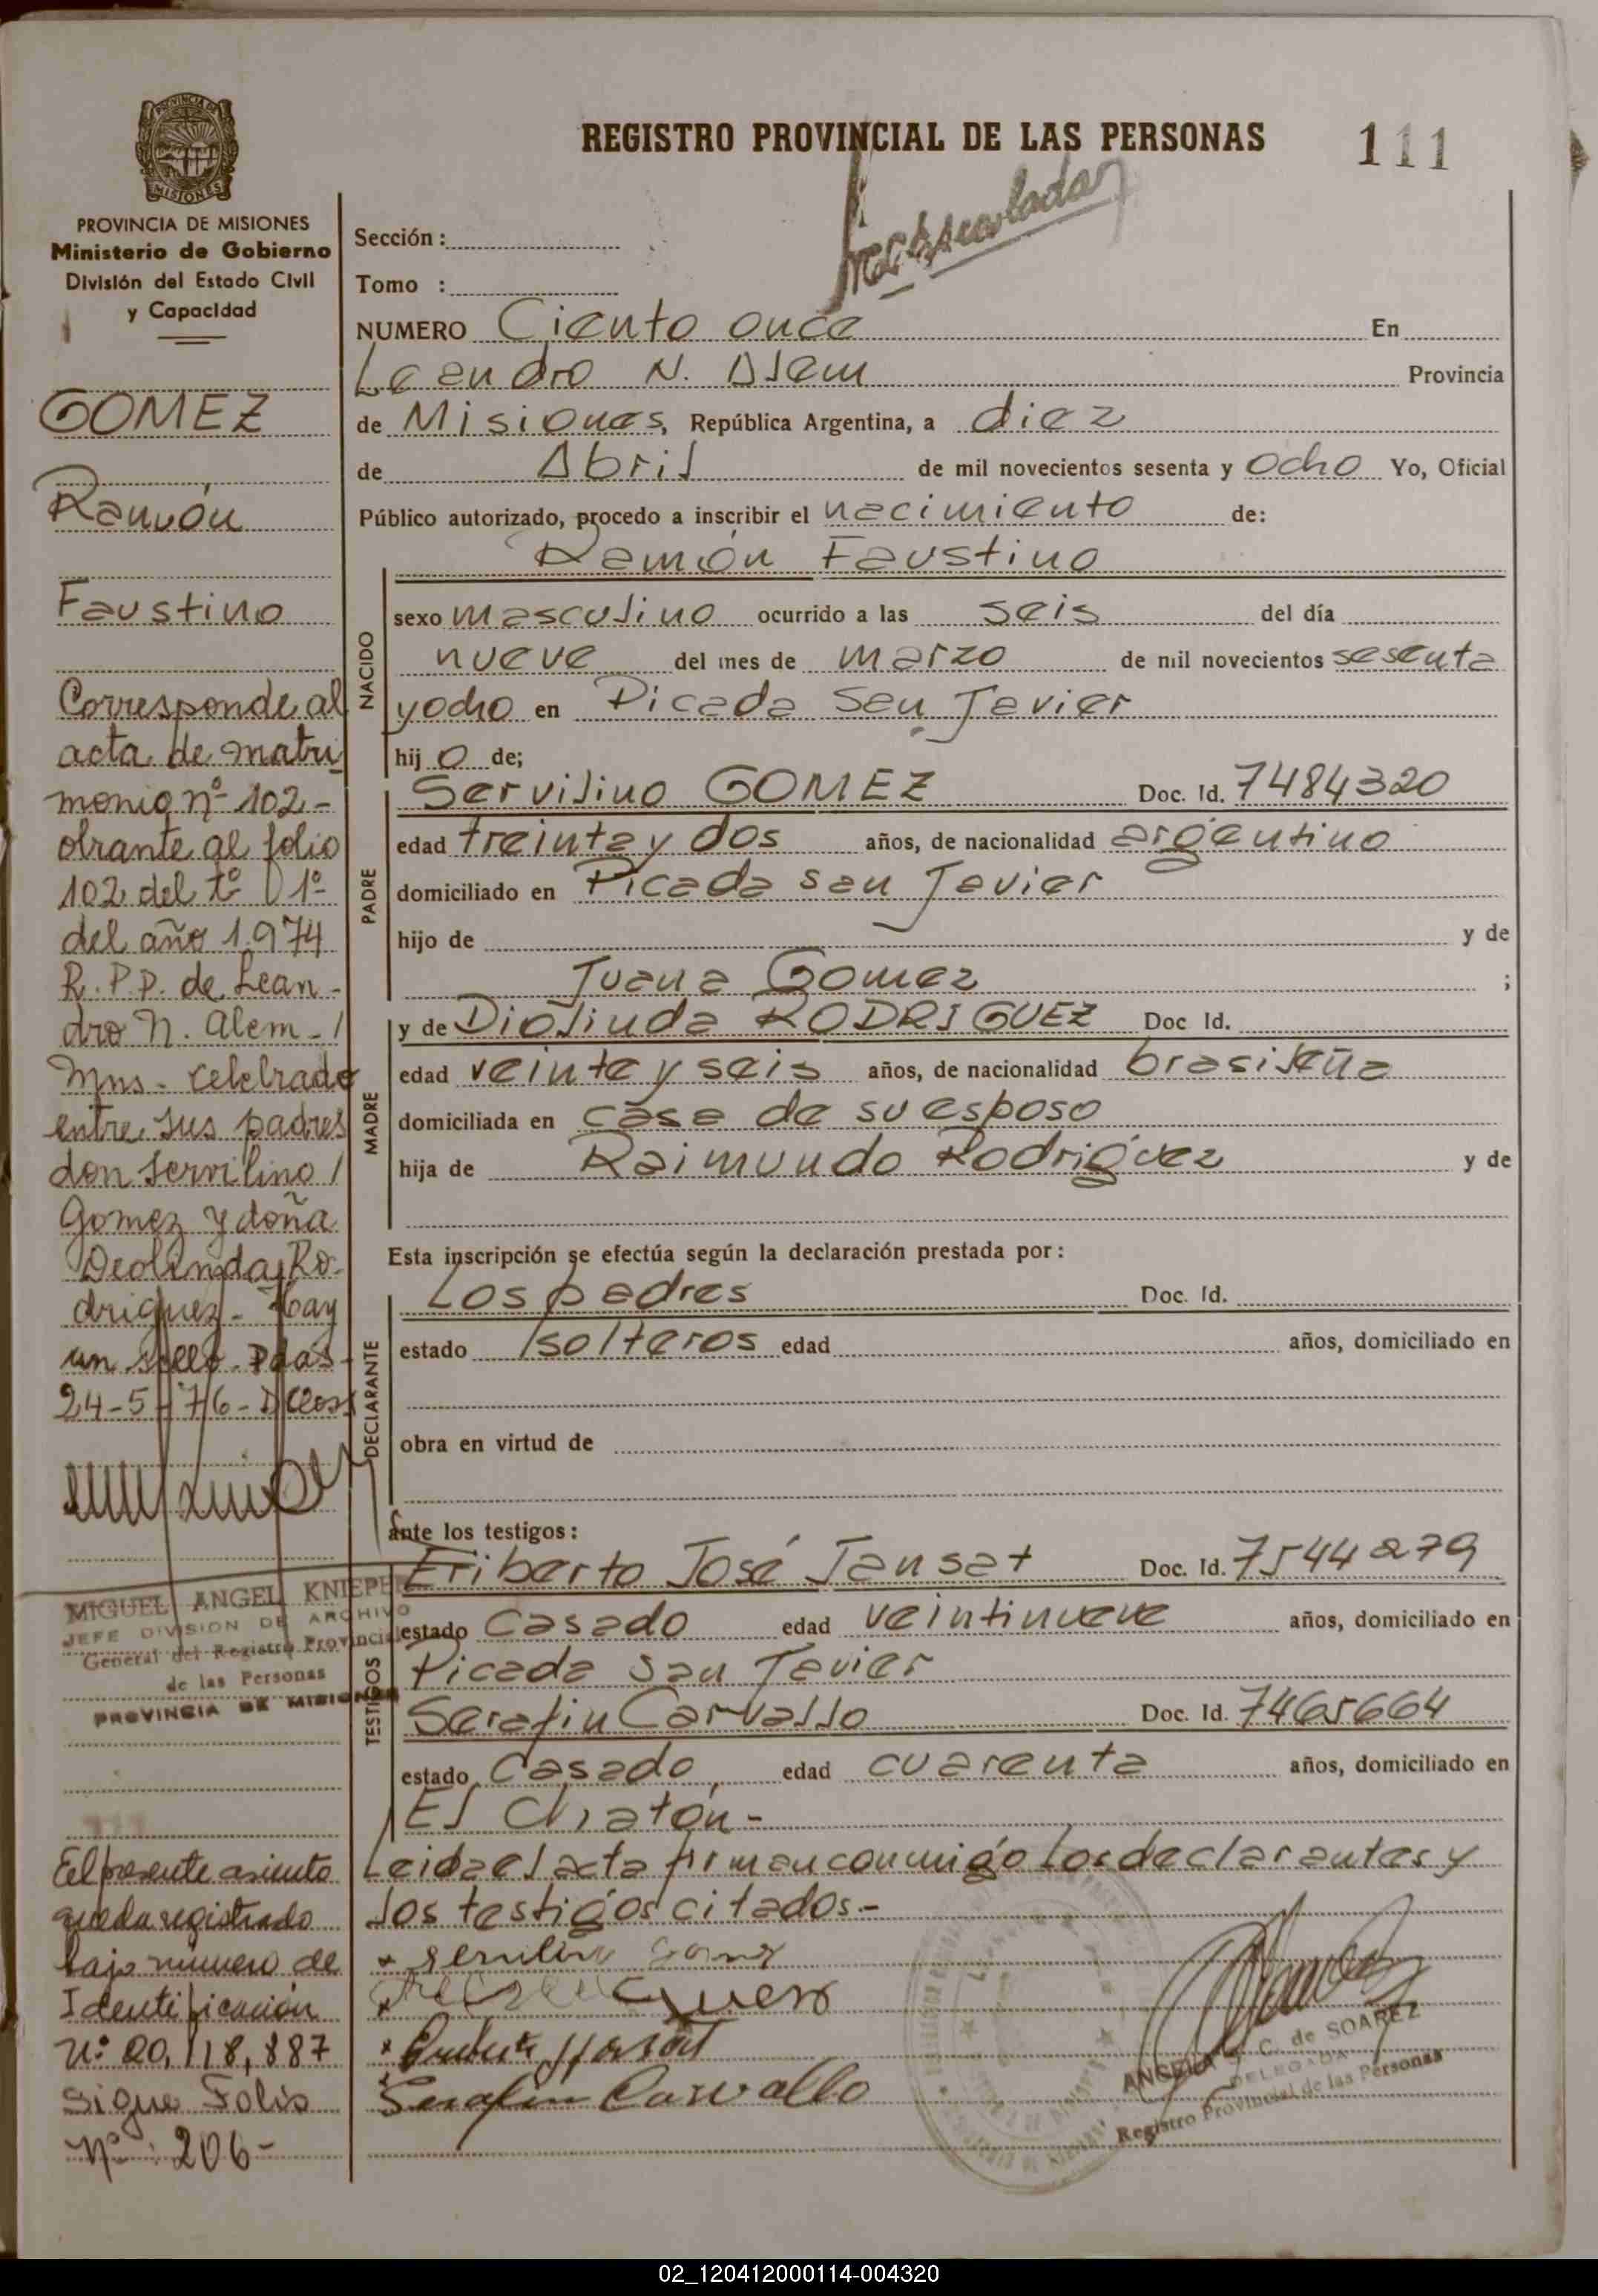 REGISTRO PROVINCIAL DE LAS PERSONAS
111
PROVINCIA DE MISIONES
PROVINCIA DE MISIONES
Ministerio de Gobierno
División del Estado Civil
y Capacidad
GOMEZ
Ramón
Faustino
Corresponde al
acta de matri
monio nº 102-
obrante al folio
102 del tº 1º
del año 1.974
R.P.P. de Lean-
dro N. Alem-/
Mns- celebrado
entre sus padres
don Servilino/
Gomez y doña
Deolinda Ro-
driguez- Hay
un sello. Pdas-
24-5-76-
MIGUEL ANGEL
JEFE DIVISION DE ARCHIVO
General del Registro Provincial
de las Personas
PROVINCIA DE MISIONES
El presente asiento
queda registrado
bajo número de
Identificación
Nº 20,118,887
Sigue Folio
Nº: 206-
Sección:
Tomo :
NUMERO Ciento once En
Leandro N. Alem Provincia
de Misiones, República Argentina, a diez
de Abril de mil novecientos sesenta y ocho Yo, Oficial
Público autorizado, procedo a inscribir el nacimiento de:
Ramón Faustino
NACIDO
sexo masculino ocurrido a las seis del día
nueve del mes de marzo de mil novecientos sesenta
y ocho en Picada San Javier
hij o de;
PADRE
Servilino GOMEZ Doc. Id. 7484320
edad treinta y dos años, de nacionalidad argentino
domiciliado en Picada san Javier
hijo de y de
Juana Gomez ;
MADRE
y de Diolinda RODRIGUEZ Doc Id.
edad veinte y seis años, de nacionalidad brasileña
domiciliada en casa de su esposo
hija de Raimundo Rodriguez y de
Esta inscripción se efectúa según la declaración prestada por:
DECLARANTE
Los padres Doc. Id.
estado solteros edad años, domiciliado en
obra en virtud de
ante los testigos:
TESTIGOS
Eriberto José Jansat Doc. Id. 7544279
estado casado edad veintinueve años, domiciliado en
Picada San Javier
Serafin Carvallo Doc. Id. 7465664
estado casado, edad cuarenta años, domiciliado en
El Chatón-
Leida el acta firman conmigo los declarantes y
los testigos citados.-
Serafin Carvallo
C. de SOAREZ
DELEGADA
Registro Provincial de las Personas
02_120412000114-004320